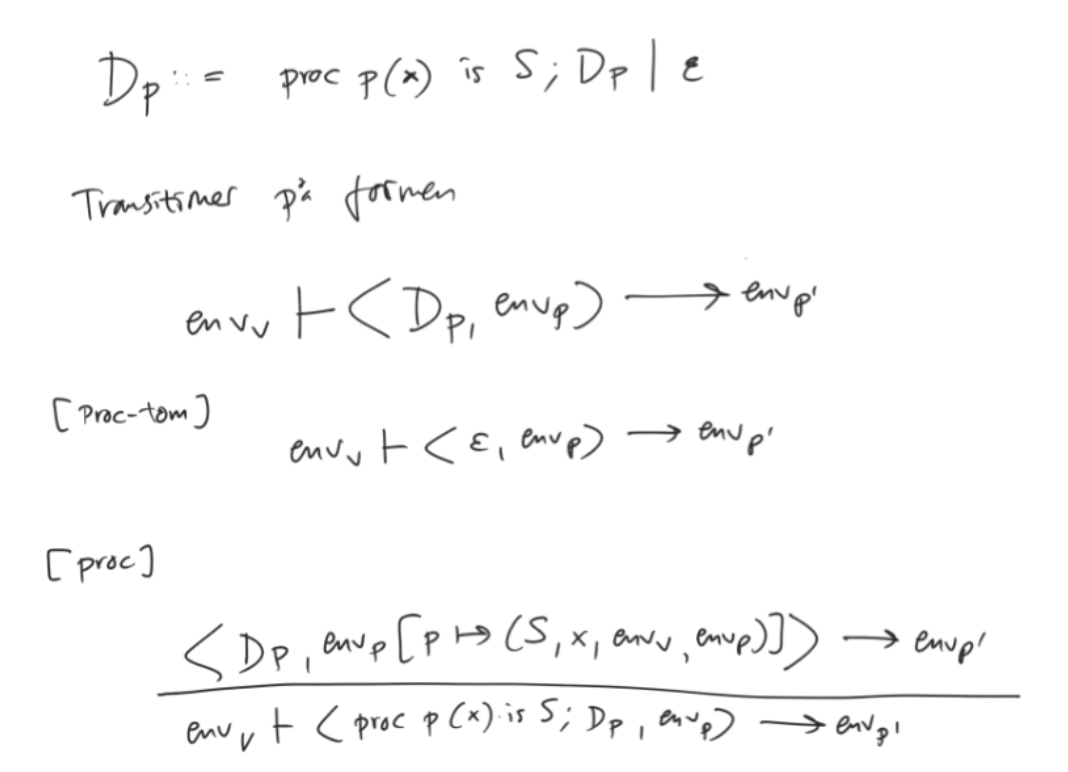 D_p ::= proc p(x) is S; D_p | ε
Transitioner på formen
env_v ⊢ ⟨D_p, env_p⟩ ⟶ env_p'
[Proc-tom]
env_v ⊢ ⟨ε, env_p⟩ → env_p'
[proc]
⟨D_p, env_p[p ↦ (S, x, env_v, env_p)]⟩ → env_p'
env_v ⊢ ⟨proc p(x) is S; D_p, env_p⟩ ⟶ env_p'